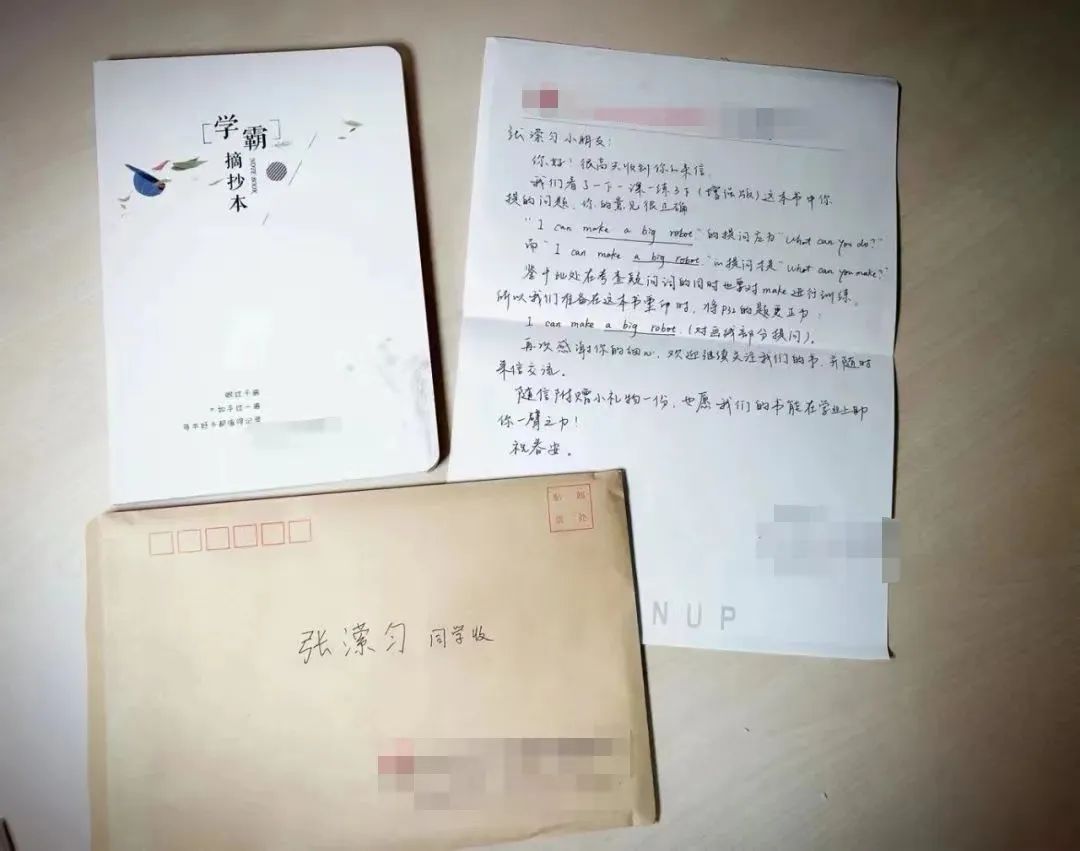 学霸
摘抄本
NOTE BOOK
眼过千遍
不如手过一遍
好记性不如烂笔头
张潆匀小朋友：
你好！很高兴收到你的来信。
我们看了一下一课一练3下（增强版）这本书中你
提的问题，你的意见很正确
"I can make a big robot"的提问应为"What can you do?"
而"I can make a big robot."的提问才是"What can you make?"
鉴于此处在考查疑问词的同时也要对make进行训练。
所以我们准备在这本书重印时，将P32的题更正为：
I can make a big robot.（对画线部分提问）。
再次感谢你的细心，欢迎继续关注我们的书，并随时
来信交流。
随信附赠小礼物一份，也愿我们的书能在学业上助
你一臂之力！
祝春安。
NUP
贴 邮
票 处
张潆匀 同学收